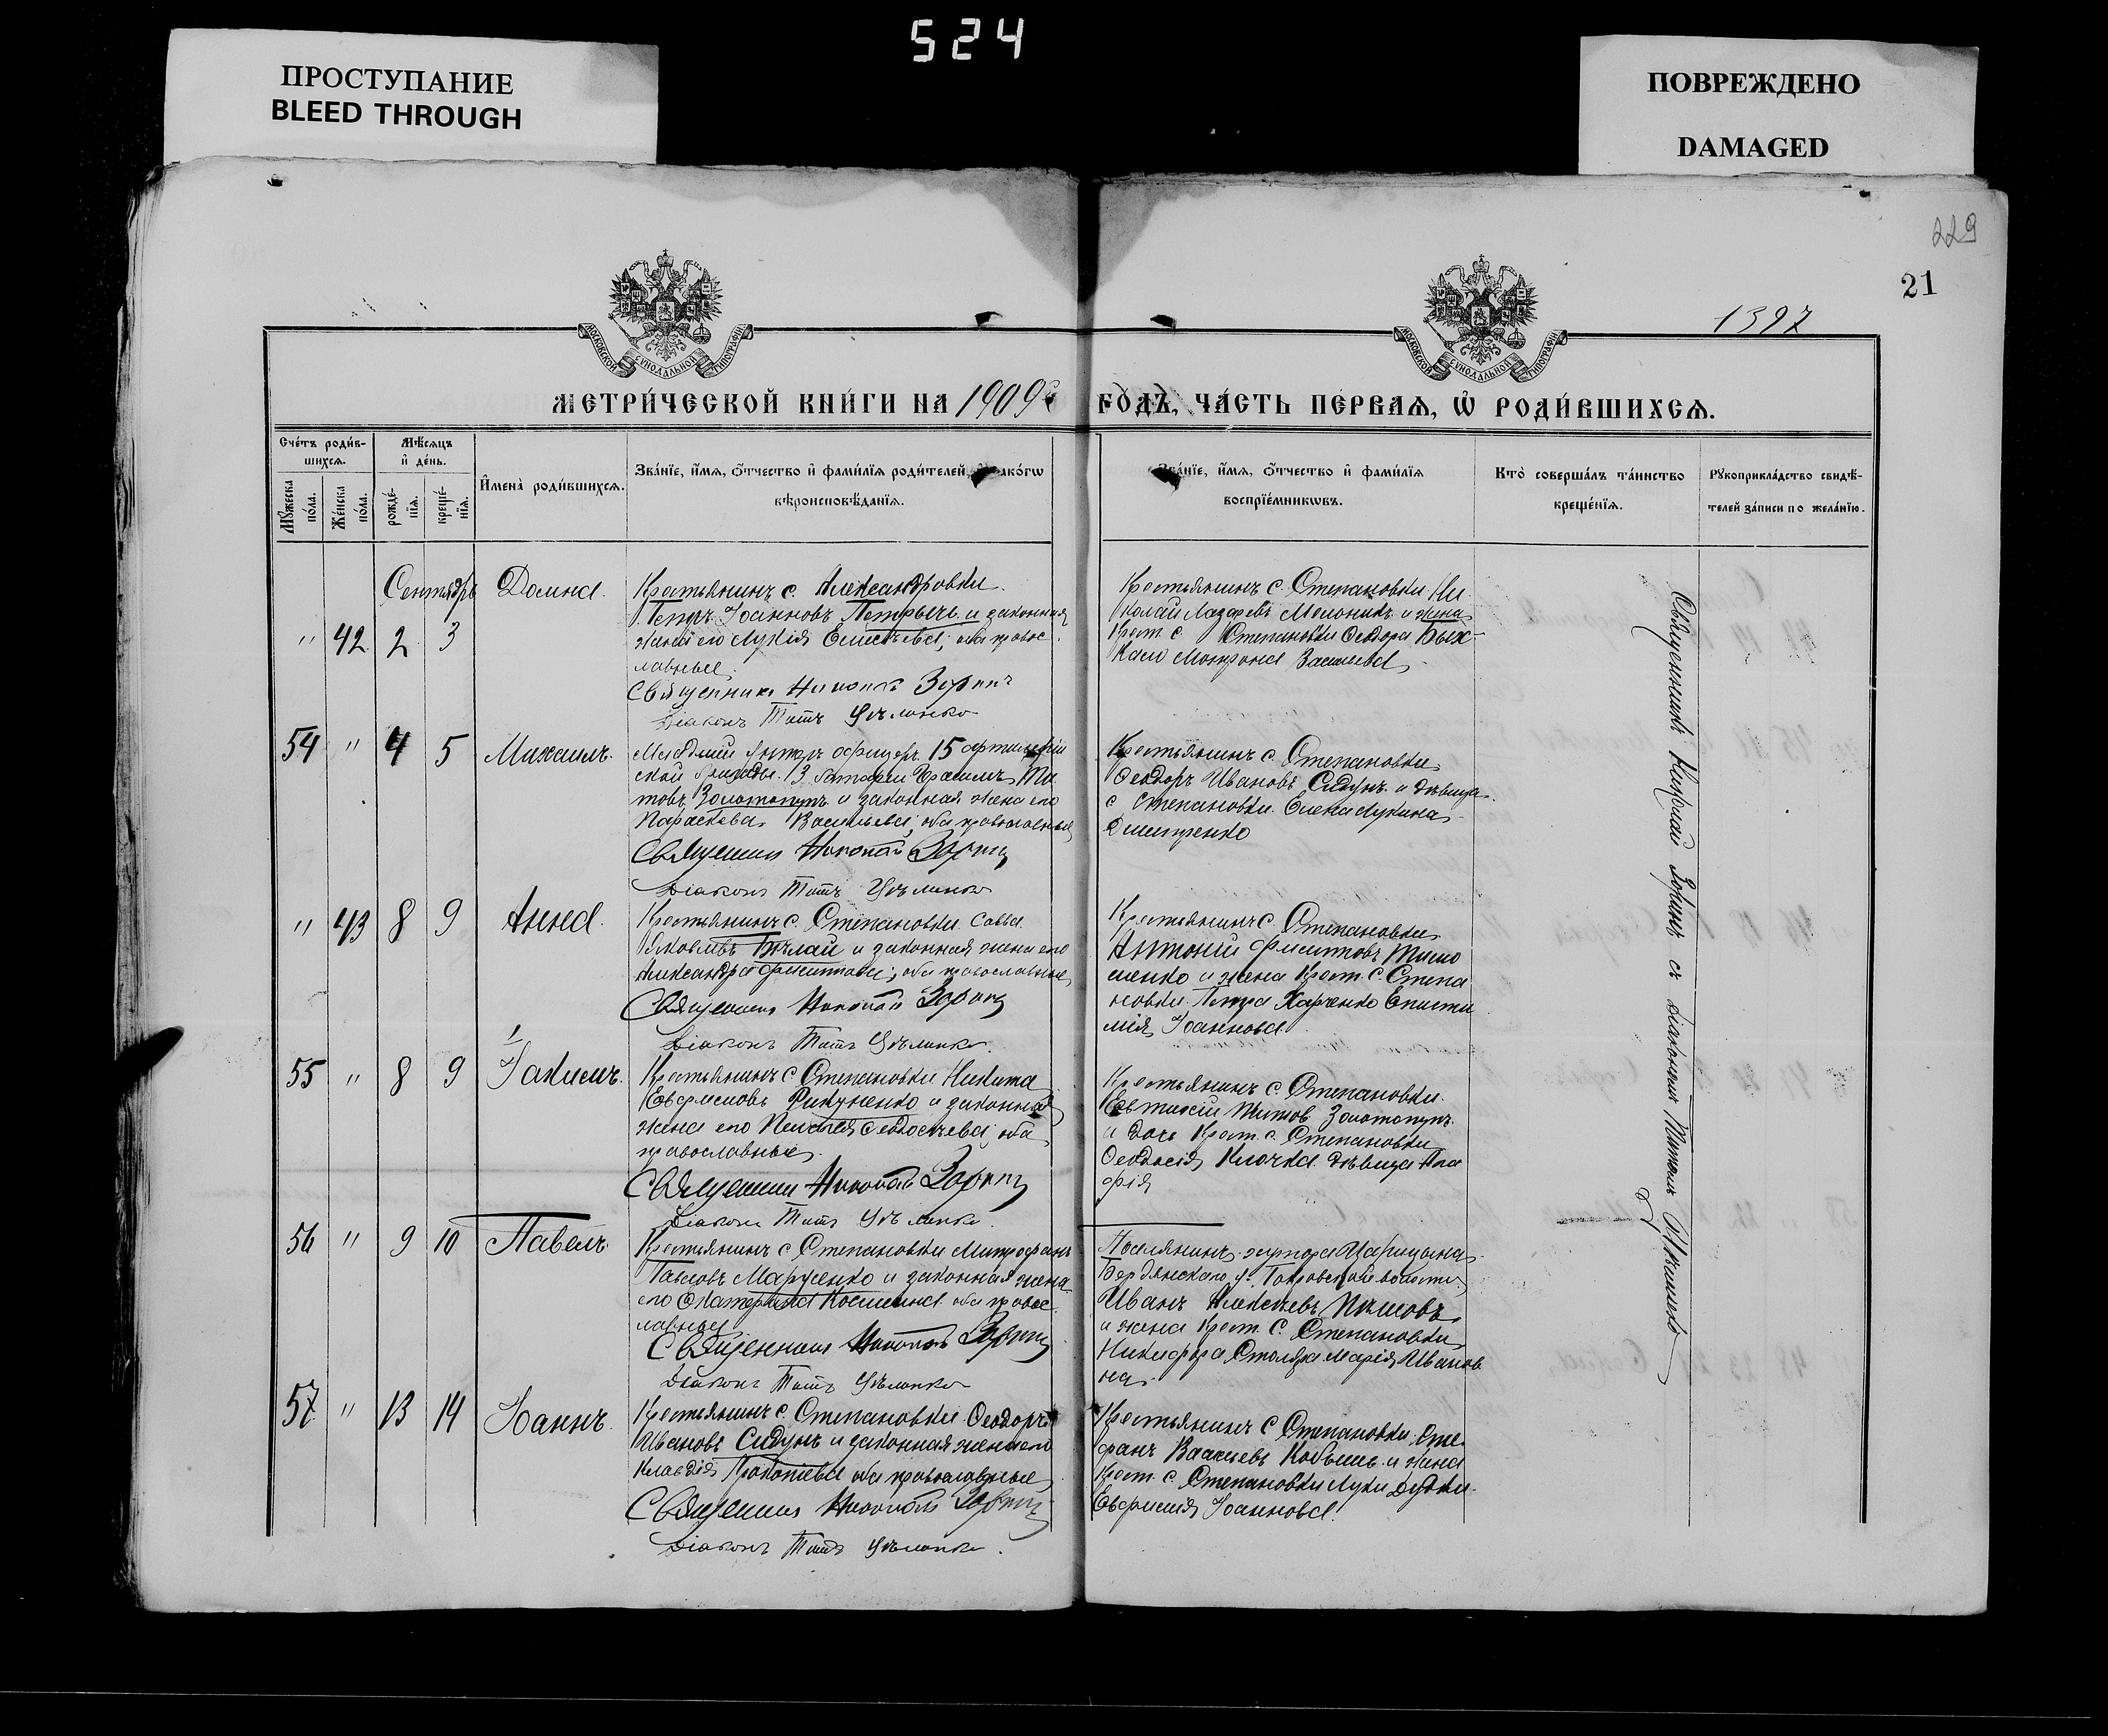 524
ПРОСТУПАНИЕ
BLEED THROUGH
ПОВРЕЖДЕНО
DAMAGED
229
21
1397
МОСКОВСКОЙ СѴНОДАЛЬНОЙ ТИПОГРАФІИ
МОСКОВСКОЙ СѴНОДАЛЬНОЙ ТИПОГРАФІИ
МЕТРИ́ЧЕСКОЙ КНИ́ГИ НА 1909 ГО́ДЪ, ЧА́СТЬ ПЕ́РВАѦ, Ѡ҆ РОДИ́ВШИХСѦ.
Сче́тъ роди́в-
шихсѧ.
Мѣ́сѧцъ
и҆ де́нь.
Мꙋ́жеска
по́ла.
Же́нска
по́ла.
рожде́-
нїѧ.
креще́-
нїѧ.
И҆мена̀ роди́вшихсѧ.
Зва́нїе, и҆́мѧ, ѻ҆́тчество и҆ фами́лїѧ роди́телей, и҆ како́гѡ
вѣроисповѣ́данїѧ.
Зва́нїе, и҆́мѧ, ѻ҆́тчество и҆ фами́лїѧ
воспрїе́мникѡвъ.
Кто̀ соверша́лъ та́инство
креще́нїѧ.
Рꙋкоприкла́дство свидѣ́-
телей за́писи по жела́нїю.
Сентябрь
" 42 2 3 Домна.
Крестьянинъ с. Александровки
Петръ Іоанновъ Петрычъ и законная
жена его Лукія Елисѣева; оба правос
лавные
Священникъ Николай Зоринъ
Діаконъ Титъ
Крестьянинъ с. Степановки Ни
колай Лазаревъ Мельникъ и жена
Крест. с. Степановки Ѳеодора
Матрона Васильева
54 " 4 5 Михаилъ.
Младшій унтеръ офицеръ 15 артиллерій
ской бригады 3 батареи Герасимъ Ти
товъ Золотопупъ и законная жена его
Параскева Васильева; оба православные
Священникъ Николай Зоринъ
Діаконъ Титъ
Крестьянинъ с. Степановки
Ѳеодоръ Ивановъ Сидунъ и дѣвица
с Степановки Елена Лукина
Дмитренко
" 43 8 9 Анна.
Крестьянинъ с. Степановки Савва
Яковлевъ Бѣлай и законная жена его
Александра Филиппова; оба православные
Священникъ Николай Зоринъ
Діаконъ Титъ
Крестьянинъ с. Степановки
Антоній Филипповъ Тимо
шенко и жена Крест. с. Степа
новки Петра Харченко Еписти
мія Іоаннова.
55 " 8 9 Іакимъ.
Крестьянинъ с Степановки Никита
Евфимовъ и законная
жена его Пелагія Ѳеодосіева; оба
православные
Священникъ Николай Зоринъ
Діаконъ Титъ
Крестьянинъ с. Степановки
Евтихій Титов Золотопупъ
и дочь Крест. с. Степановки
Ѳеодосія Клочка дѣвица Ма
рія
56 " 9 10 Павелъ.
Крестьянинъ с Степановки Митрофанъ
Павловъ Марусенко и законная жена
его Екатерина Космина оба правос
лавные
Священникъ Николай Зоринъ
Діаконъ Титъ
Поселянинъ хутора Царицына
Бердянскаго у. Покровской волости
Иванъ Алексѣевъ
и жена Крест. с. Степановки
Никифора Столяра Марія Иванов
на
57 " 13 14 Іоаннъ.
Крестьянинъ с. Степановки Ѳеодоръ
Ивановъ Сидунъ и законная жена его
Клавдія Прокопіева оба православные
Священникъ Николай Зоринъ
Діаконъ Титъ
Крестьянинъ с Степановки Сте
фанъ Васильевъ и жена
Крест. с. Степановки Луки Дудки
Евфимія Іоаннова.
Священникъ Николай Зоринъ съ діакономъ Титомъ